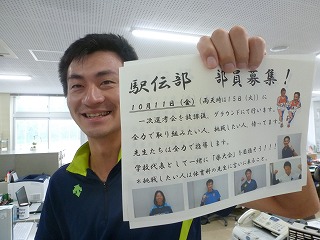 駅伝部 部員募集!
10月11日(金)(雨天時は15日(火))に
一次選考会を放課後、グラウンドにて行います。
全力で取り組みたい人、挑戦したい人、待ってます
先生たちは全力で指導します。
学校代表として一緒に「県大会」を目指そう!!!!
※挑戦したい人は体育科の先生に言いに来ること。